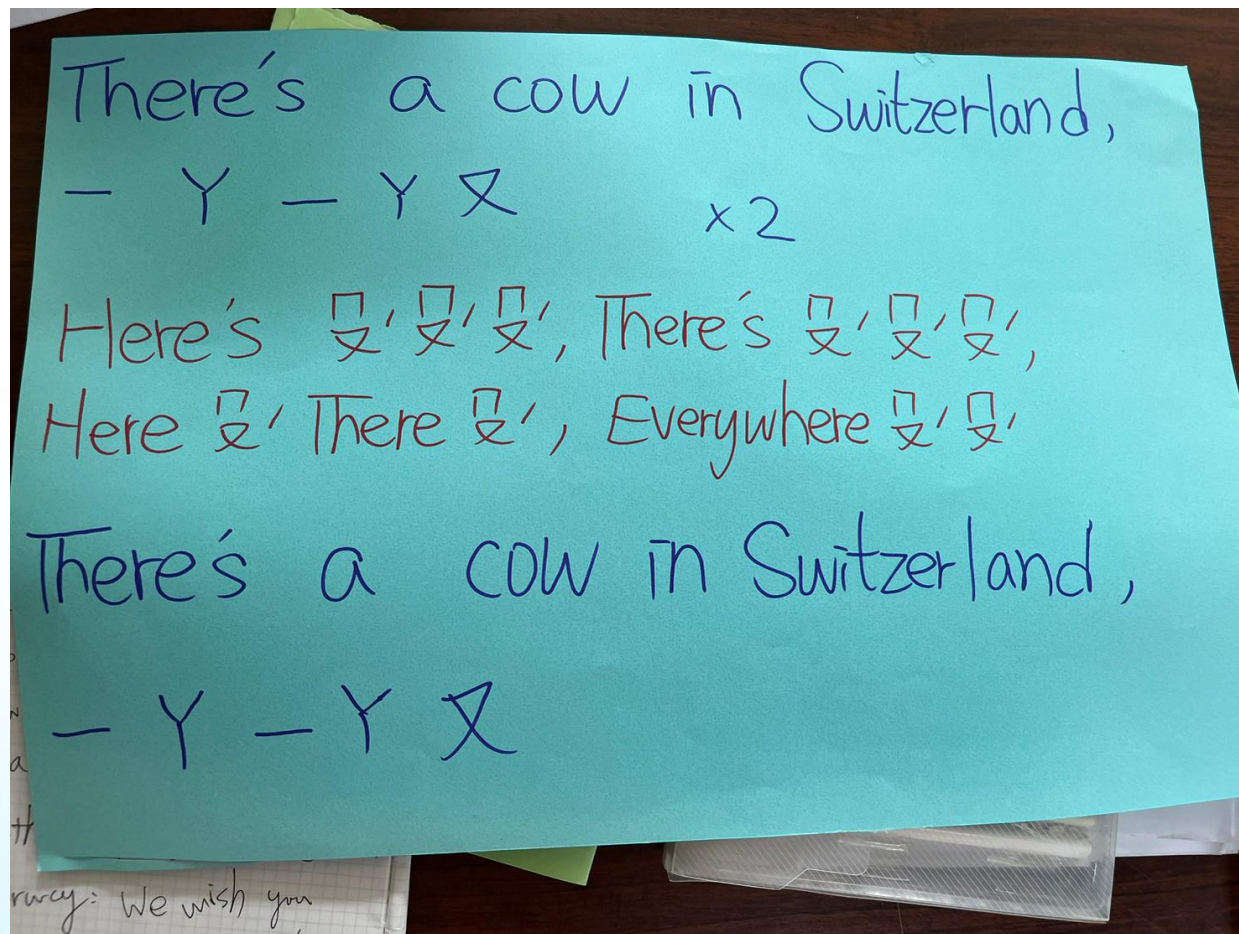 There's a cow in Switzerland,
ㄧ ㄚ ㄧ ㄚ ㄡ ×2
Here's ㄇㄡˊ ㄇㄡˊ ㄇㄡˊ, There's ㄇㄡˊ ㄇㄡˊ ㄇㄡˊ,
Here ㄇㄡˊ There ㄇㄡˊ, Everywhere ㄇㄡˊ ㄇㄡˊ
There's a cow in Switzerland,
ㄧ ㄚ ㄧ ㄚ ㄡ
We wish you